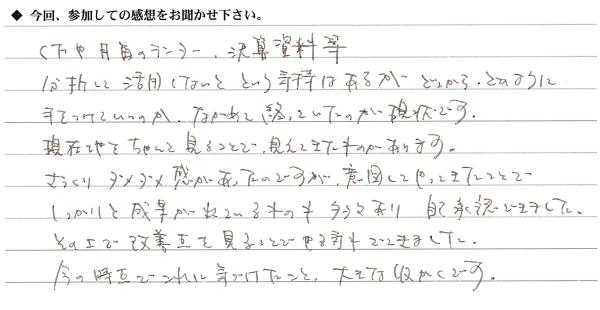 ◆ 今回、参加しての感想をお聞かせ下さい。
や月毎のランラー、決算資料等
分析して活用しないと という気持はあるが どこから、どのように
手をつけていいのか、ながめて終っていたのが現状です。
現在地をちゃんと見ることで、見えてきたものがあります。
ざっくり ダメダメ感があったのですが、意図してやってきたことで
しっかりと成果が出ているものも多々あり 自己承認できました。
その上で改善点を見ることでやる気もでてきました。
今の時点でこれに気づけたこと、大きな収かくです。